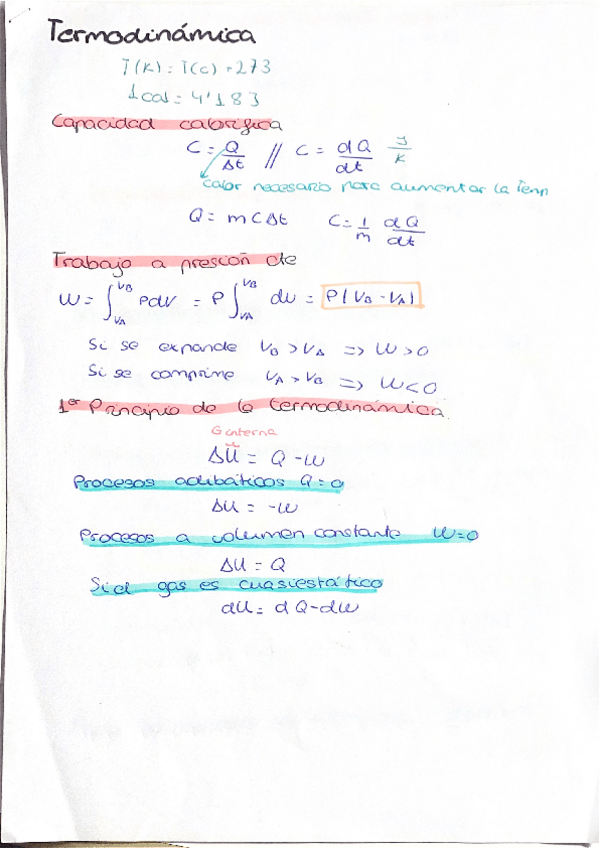 Termodinámica
T(K) = T(c) + 273
1 cal = 4'183
Capacidad calorífica
C = Q/Δt // C = dQ/dt J/K
calor necesario para aumentar la Temp
Q = m C Δt C = 1/m dQ/dt
Trabajo a presión cte
W = ∫_VA^VB PdV = P ∫_VA^VB dv = P(VB - VA)
Si se expande VB > VA => W > 0
Si se comprime VA > VB => W < 0
1er Principio de la termodinámica
E interna
ΔU = Q - W
Procesos adibáticos Q = 0
ΔU = -W
Procesos a volumen constante W = 0
ΔU = Q
Si el gas es cuasiestático
dU = dQ - dW